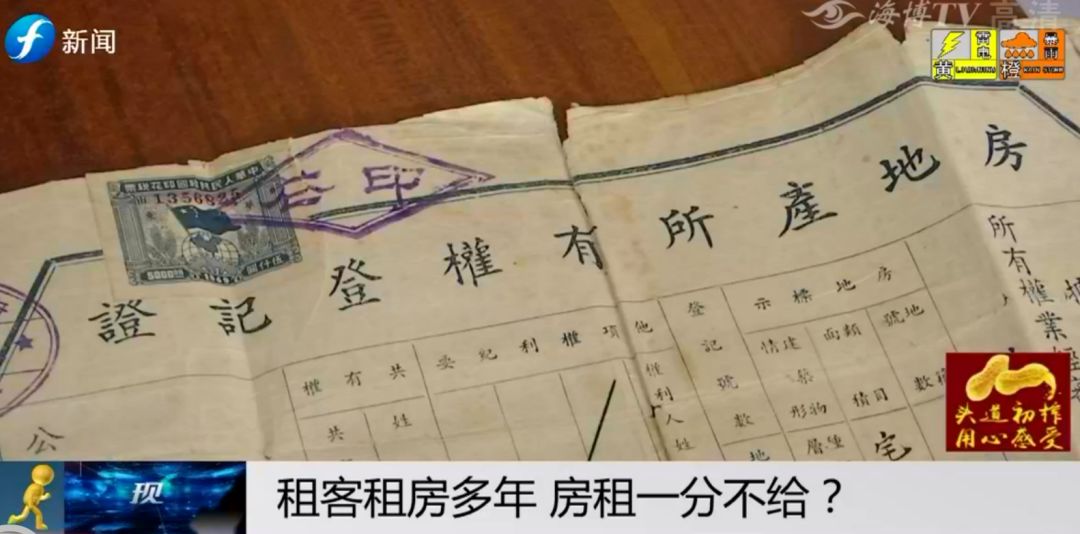 新闻
海博TV 高清
雷电
黄 LIGHTNING
暴雨
橙 RAIN STORM
房地產所有權登記證
公印
中華人民共和國印花稅票
1356822
5000圓
伍仟圓
房地標示
登記號數
他項權利紀要
共有權
地號
類目
面積
建築情形
權利人姓
姓
共
地
種
層
物
宅
所有權
業經
公
头道初榨
用心感受
现
租客租房多年 房租一分不给？